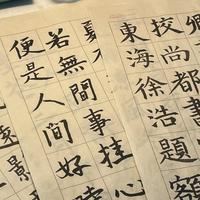 校尚都書
東海徐浩題額
夏
若無間事挂心
便是人間好
景